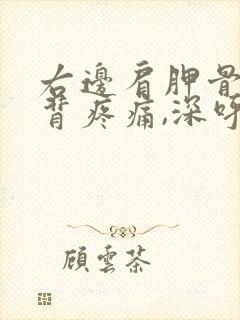 右邊肩胛骨
背疼痛,深呼
顧雲茶